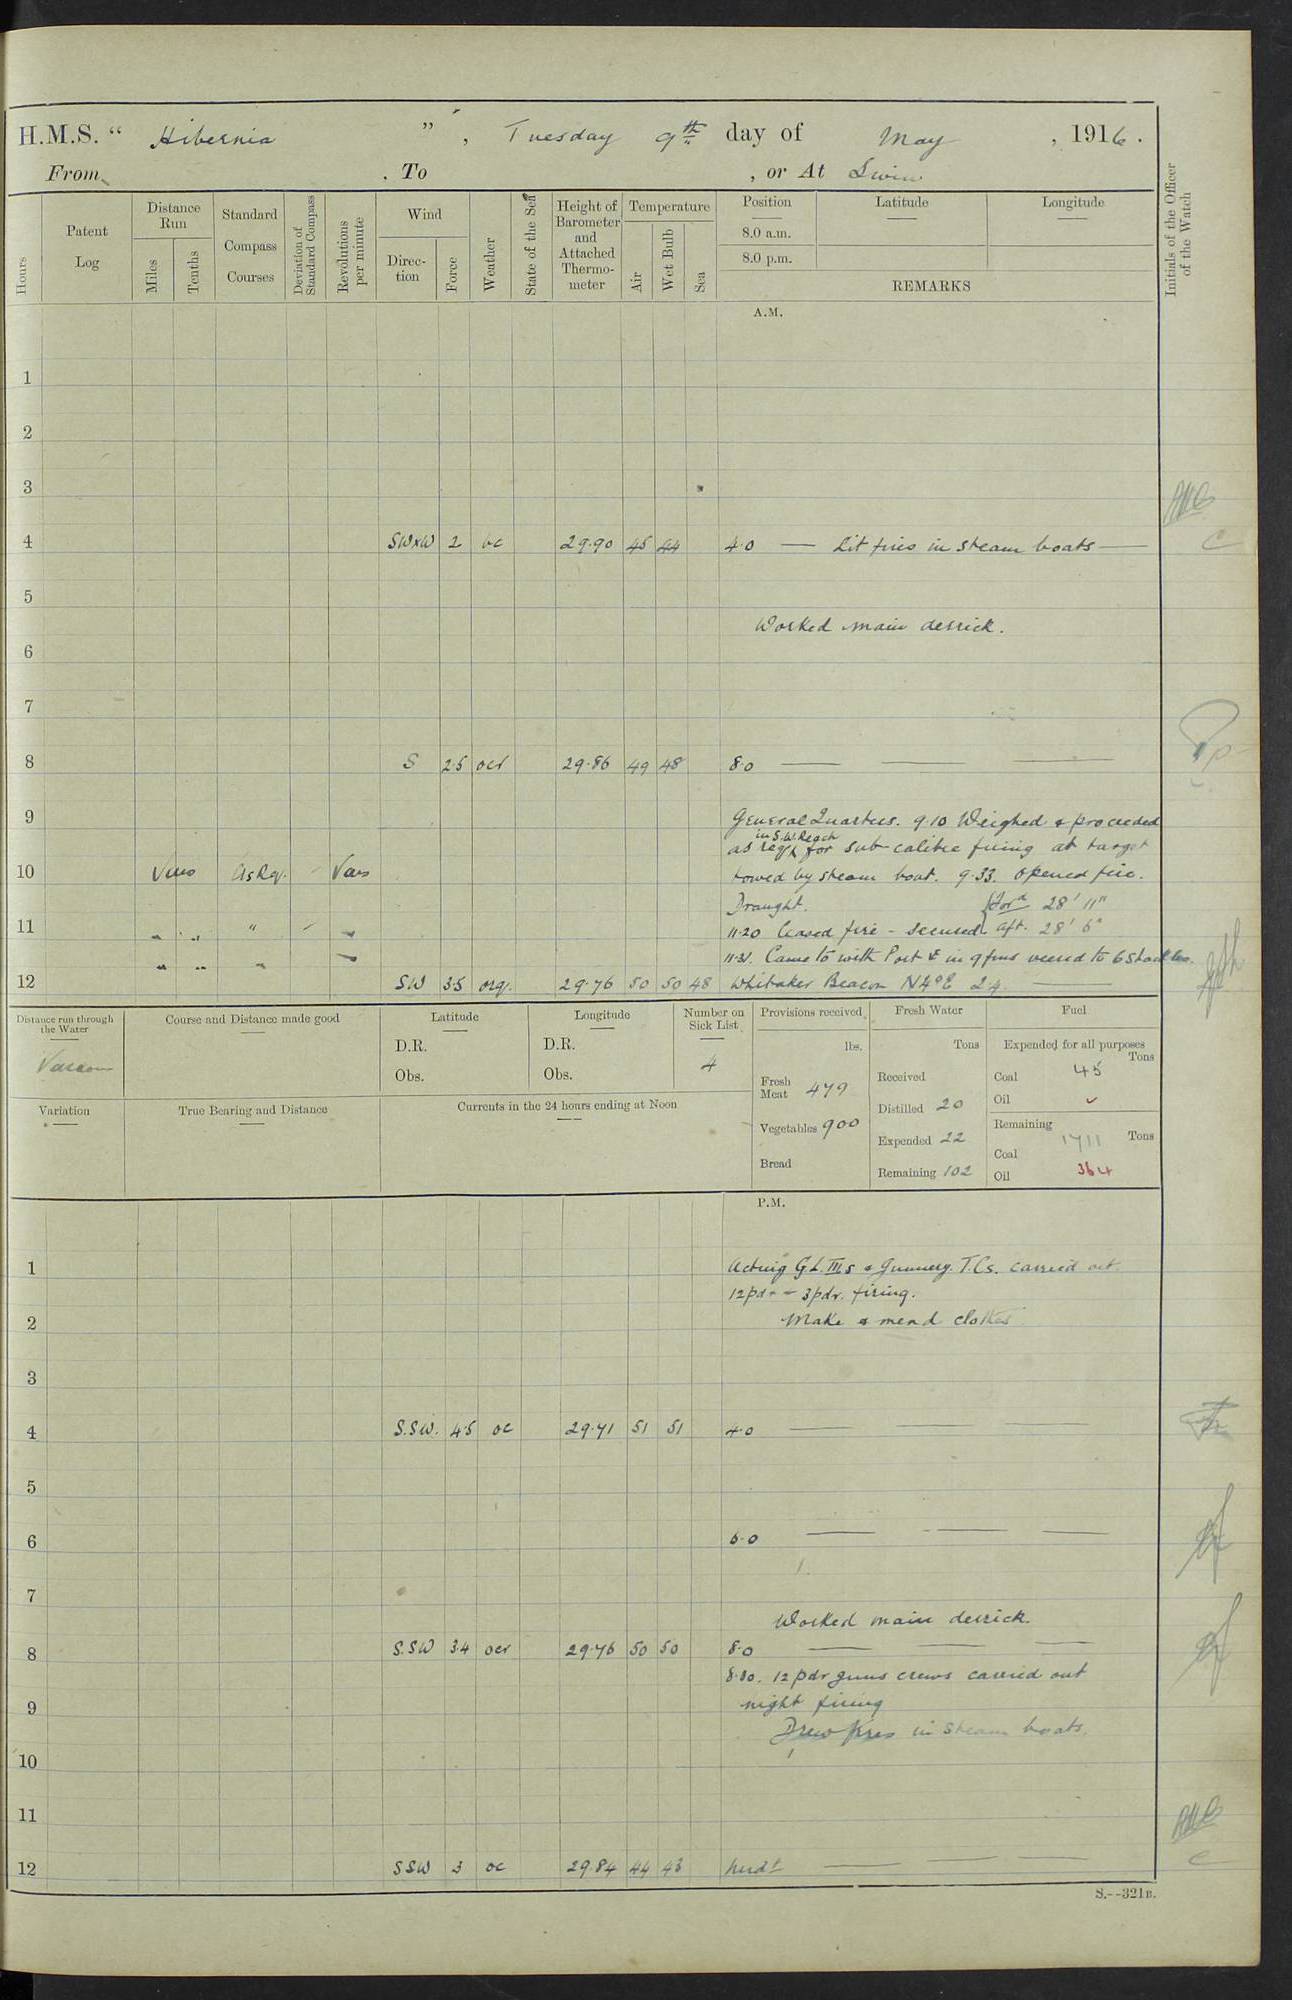 H.M.S. “ Hibernia ” , Tuesday 9th day of May , 1916 .
From . To , or At Swin
Hours
Patent Log
Distance Run
Miles
Tenths
Standard Compass Courses
Deviation of Standard Compass
Revolutions per minute
Wind
Direction
Force
Weather
State of the Sea
Height of Barometer and Attached Thermometer
Temperature
Air
Wet Bulb
Sea
Position
8.0 a.m.
8.0 p.m.
Latitude
Longitude
REMARKS
Initials of the Officer of the Watch
A.M.
1
2
3
4 SWxW 2 bc 29.90 45 44 4.0 — Lit fires in steam boats —
5
Worked main derrick.
6
7
8 S 2.5 ocr 29.86 49 48 8.0
9
General Quarters. 9.10 Weighed & proceeded
in S.W. Reach
as reqd for sub calibre firing at target
10 Vars As Rq. Vars towed by steam boat. 9.33. opened fire.
Draught. {Ford 28' 11"
11 " " " " 11.20 Ceased fire – secured. aft. 28' 6"
" " " " 11.31. Came to with Port in 9 fms veered to 6 shackles.
12 SW 3.5 orq. 29.76 50 50 48 Whitaker Beacon N4°E 2.4.
Distance run through the Water
Course and Distance made good
Latitude
D.R.
Obs.
Longitude
D.R.
Obs.
Number on Sick List
4
Provisions received
lbs.
Fresh Meat 479
Vegetables 900
Bread
Fresh Water
Tons
Received
Distilled 20
Expended 22
Remaining 102
Fuel
Expended for all purposes
Tons
Coal 45
Oil
Remaining
Tons
Coal 1711
Oil 364
Variation
True Bearing and Distance
Currents in the 24 hours ending at Noon
P.M.
1 Acting G.L. IIIs & Gunnery. T.Cs. carried out.
12pdr – 3pdr. firing.
2 Make & mend clothes
3
4 S.SW. 4.5 oc 29.71 51 51 4.0
5
6 6.0
7
Worked main derrick.
8 S.SW 3.4 ocr 29.76 50 50 8.0
8.30. 12 pdr guns crews carried out
9 night firing
Drew fires in steam boats.
10
11
12 SSW 3 oc 29.84 44 43 Midt
S.--321B.